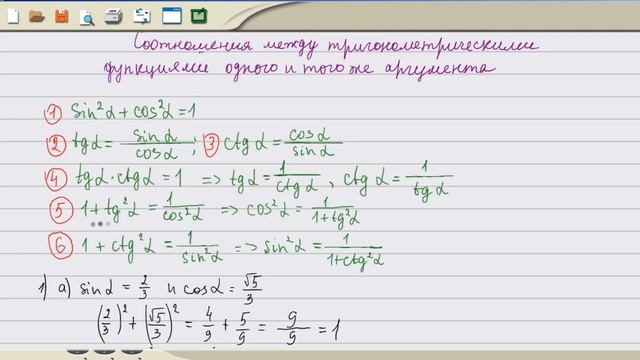 Соотношения между тригонометрическими
функциями одного и того же аргумента
① sin²α + cos²α = 1
② tgα = sinα/cosα ; ③ ctgα = cosα/sinα
④ tgα · ctgα = 1 => tgα = 1/ctgα , ctgα = 1/tgα
⑤ 1 + tg²α = 1/cos²α => cos²α = 1/(1+tg²α)
⑥ 1 + ctg²α = 1/sin²α => sin²α = 1/(1+ctg²α)
1) а) sinα = 2/3 и cosα = √5/3
(2/3)² + (√5/3)² = 4/9 + 5/9 = 9/9 = 1